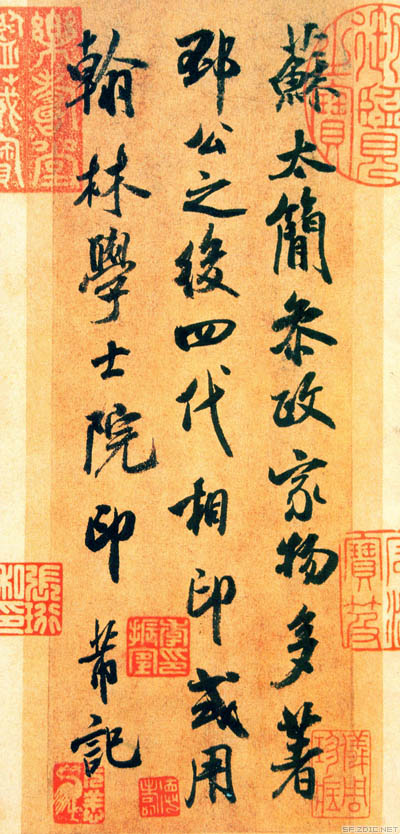 蘇太簡叅政家物多著
邳公之後四代相印或用
翰林學士院印 芾記
樂壽堂
鑑藏寶
SF.ZDIC.NET